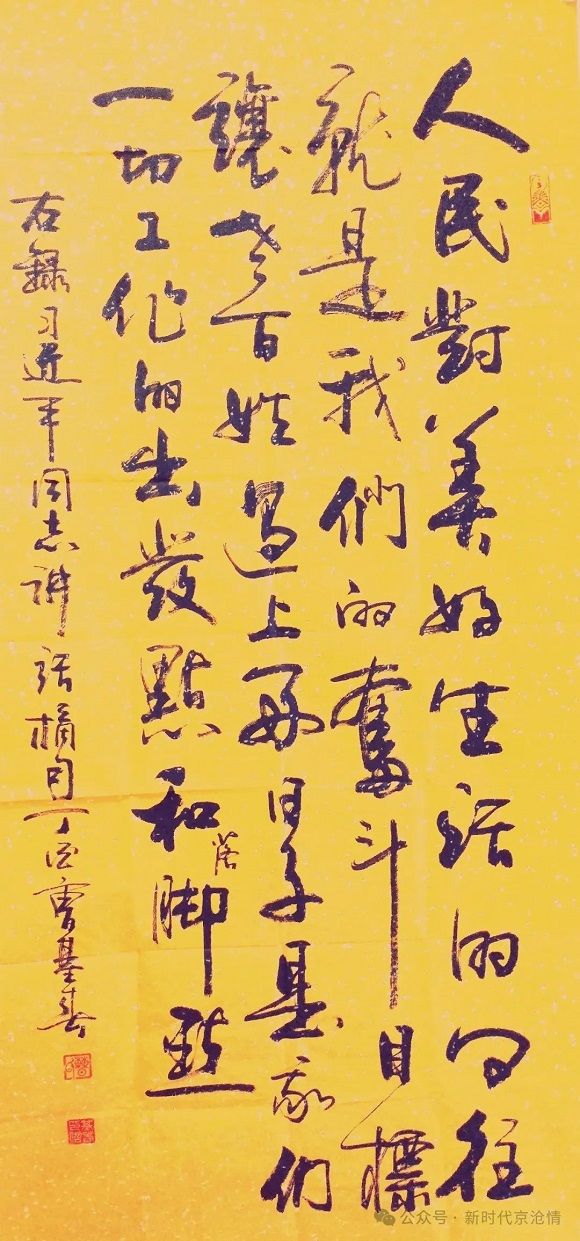 人民對美好生活的向往
就是我們的奮斗目標
讓老百姓過上好日子是我们
一切工作的出發點和落脚點
右録习近平同志讲话摘句丁酉曹基春
公众号·新时代京沧情